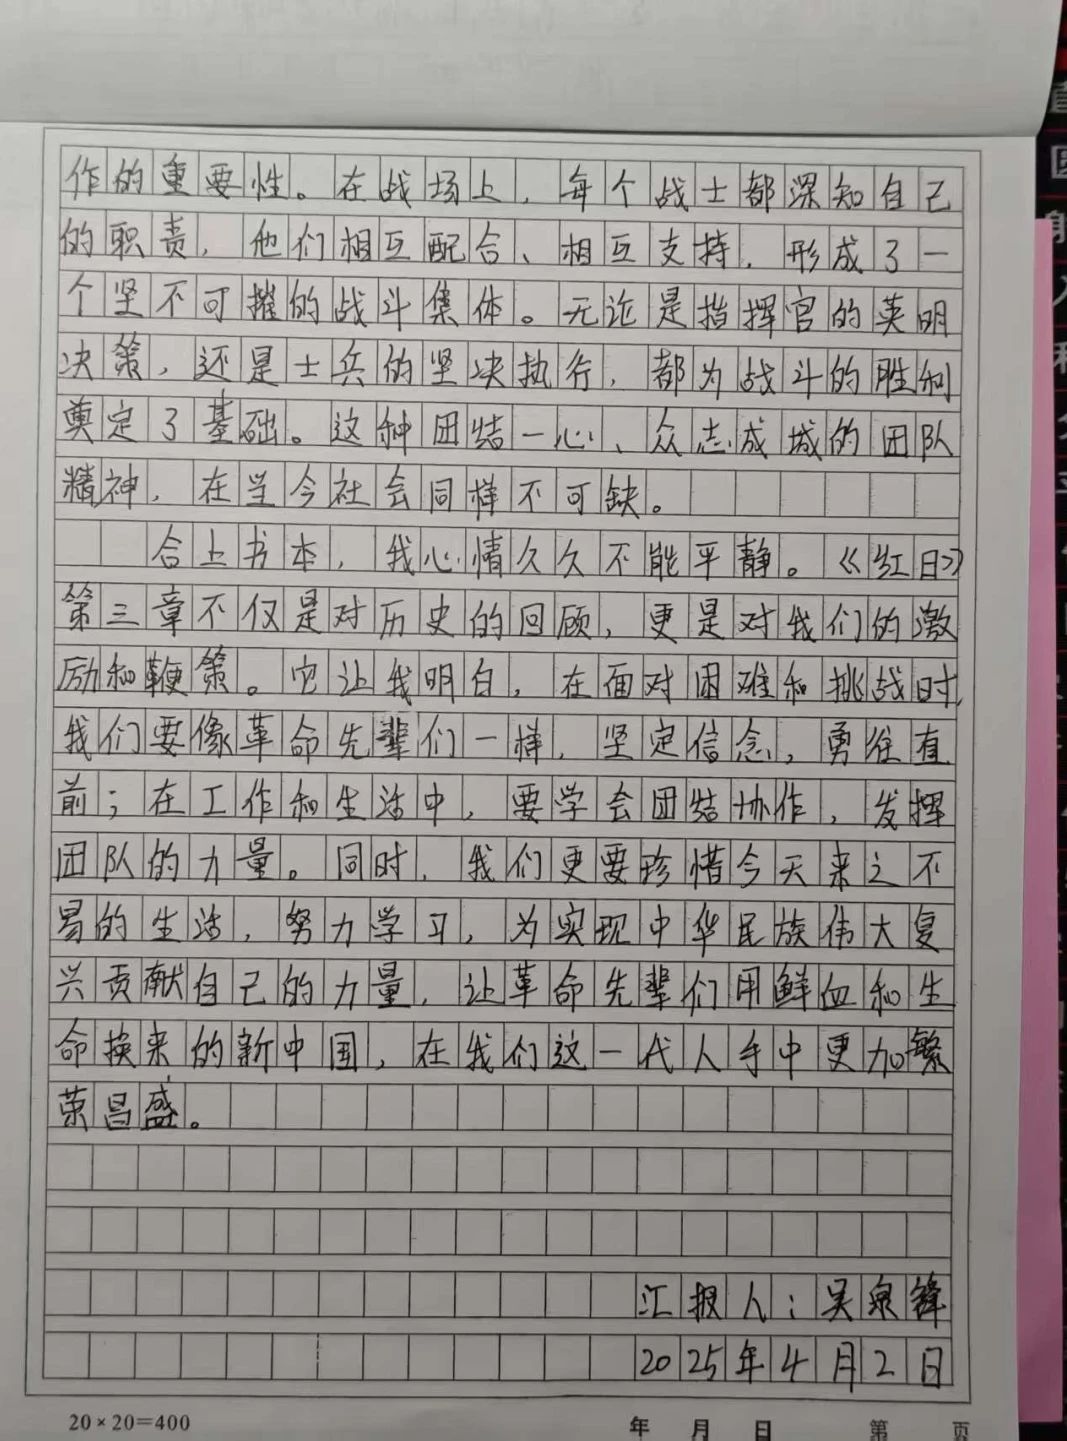 作的重要性。在战场上，每个战士都深知自己
的职责，他们相互配合、相互支持，形成了一
个坚不可摧的战斗集体。无论是指挥官的英明
决策，还是士兵的坚决执行，都为战斗的胜利
奠定了基础。这种团结一心、众志成城的团队
精神，在当今社会同样不可缺。
合上书本，我心情久久不能平静。《红日》
第三章不仅是对历史的回顾，更是对我们的激
励和鞭策。它让我明白，在面对困难和挑战时，
我们要像革命先辈们一样，坚定信念，勇往直
前；在工作和生活中，要学会团结协作，发挥
团队的力量。同时，我们更要珍惜今天来之不
易的生活，努力学习，为实现中华民族伟大复
兴贡献自己的力量，让革命先辈们用鲜血和生
命换来的新中国，在我们这一代人手中更加繁
荣昌盛。
汇报人：吴泉锋
2025年4月2日
20×20=400
年 月 日 第 页